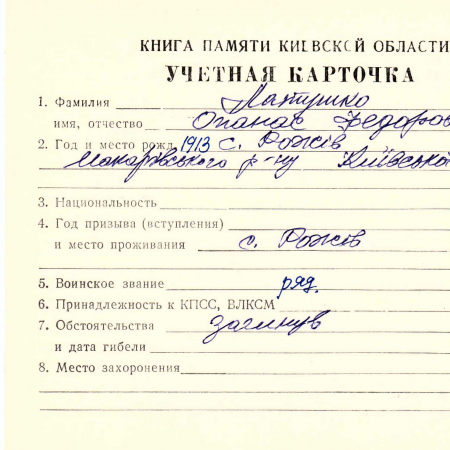 КНИГА ПАМЯТИ КИЕВСКОЙ ОБЛАСТИ
УЧЕТНАЯ КАРТОЧКА
1. Фамилия Лапушко
имя, отчество Опанас Федоров
2. Год и место рожд. 1913 с. Рожів
Макарівського р-ну Київської
3. Национальность
4. Год призыва (вступления)
и место проживания с. Рожів
5. Воинское звание ряд.
6. Принадлежность к КПСС, ВЛКСМ
7. Обстоятельства загинув
и дата гибели
8. Место захоронения